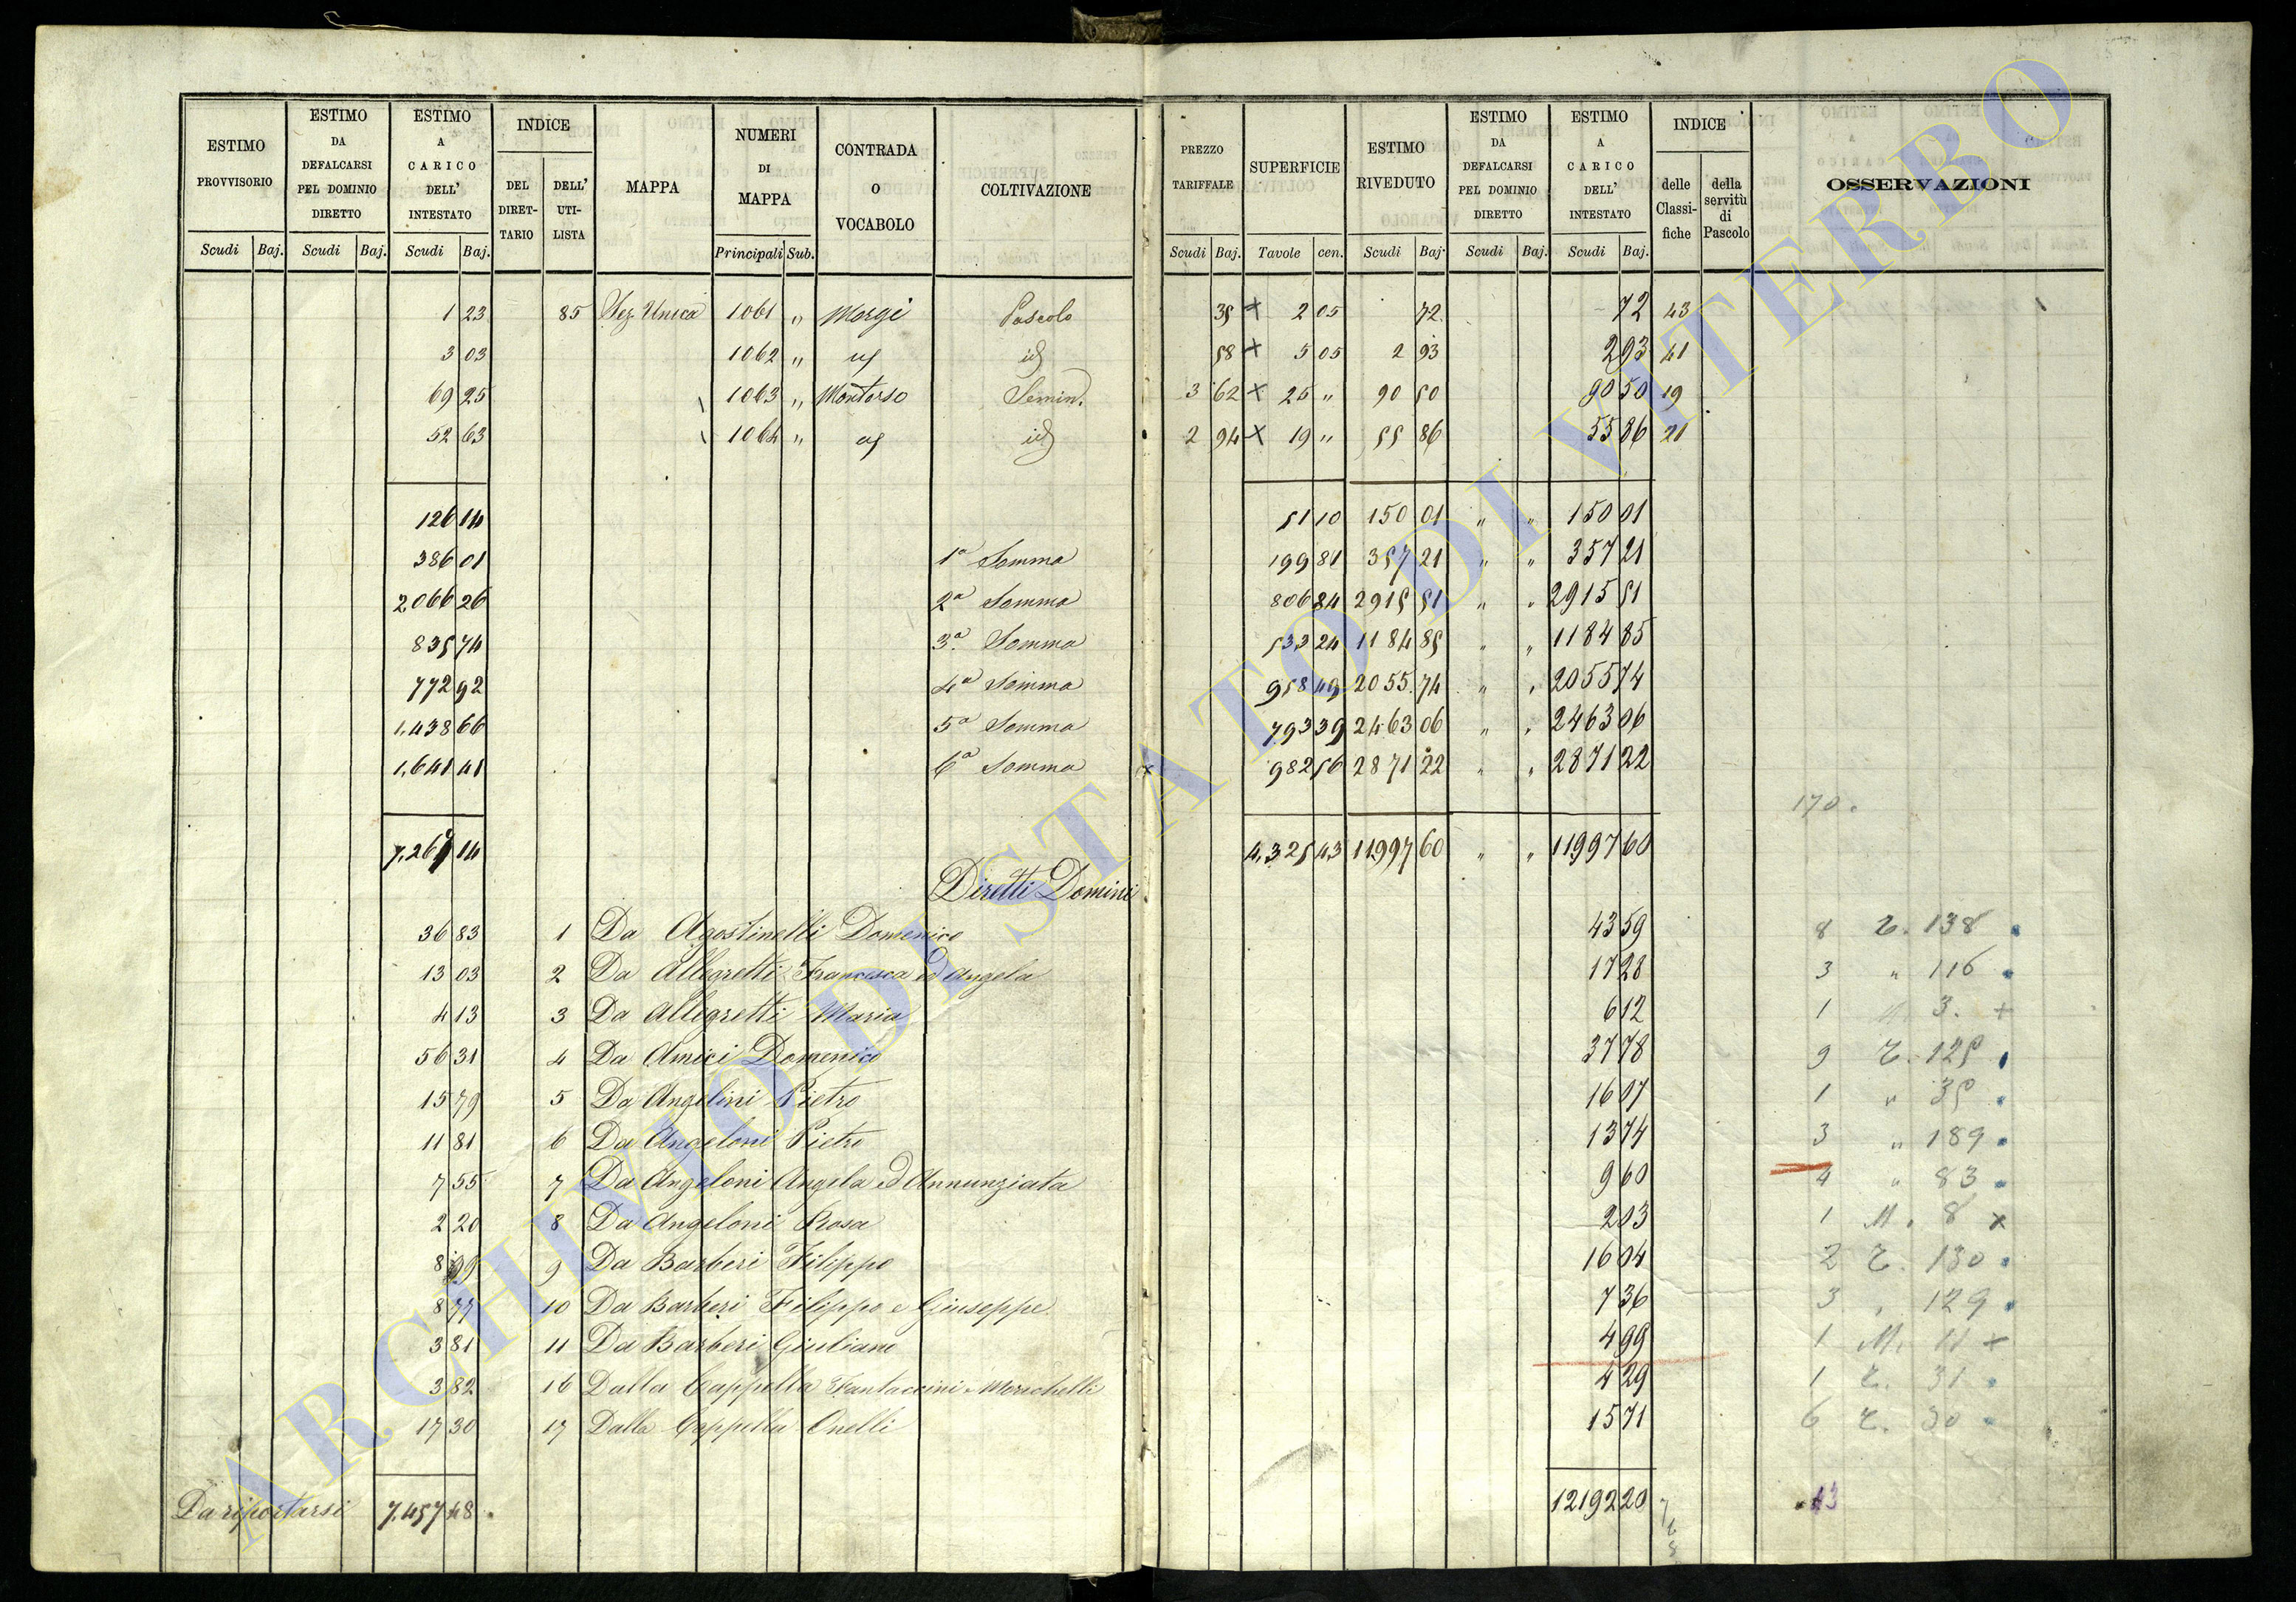 ESTIMO PROVVISORIO | ESTIMO DA DEFALCARSI PEL DOMINIO DIRETTO | ESTIMO A CARICO DELL' INTESTATO | INDICE | MAPPA | NUMERI DI MAPPA | CONTRADA O VOCABOLO | COLTIVAZIONE | PREZZO TARIFFALE | SUPERFICIE | ESTIMO RIVEDUTO | ESTIMO DA DEFALCARSI PEL DOMINIO DIRETTO | ESTIMO A CARICO DELL' INTESTATO | INDICE | OSSERVAZIONI
DEL DIRETTARIO | DELL' UTILISTA | delle Classifiche | della servitù di Pascolo
Scudi Baj. | Scudi Baj. | Scudi Baj. | Principali Sub. | Scudi Baj. | Tavole cen. | Scudi Baj. | Scudi Baj. | Scudi Baj.
1 23 | 85 | Sez. Unica | 1061 " | Morgi | Pascolo | 35 + | 2 05 | 72 | 72 | 43
3 03 | 1062 " | id | 58 + | 5 05 | 2 93 | 2 93 | 41
69 25 | 1063 " | Montorso | Semin. | 3 62 × | 25 " | 90 50 | 90 50 | 19
52 63 | 1064 " | id | 2 94 × | 19 " | 55 86 | 55 86 | 21
126 14 | 51 10 | 150 01 | " " | 150 01
386 01 | 1a Somma | 199 81 | 357 21 | " " | 357 21
2,066 26 | 2a Somma | 806 84 | 2915 51 | " " | 2915 51
835 74 | 3a Somma | 533 24 | 1184 85 | " " | 1184 85
772 92 | 4a Somma | 958 49 | 2055 74 | " " | 2055 74
1,438 66 | 5a Somma | 793 39 | 2463 06 | " " | 2463 06
1,641 41 | 6a Somma | 982 56 | 2871 22 | " " | 2871 22
170.
7,26 14 | 4,325 43 | 11997 60 | " " | 11997 60
Diretti Domini
36 83 | 1 | Da Agostinelli Domenico | 43 59 | 8 T. 138
13 03 | 2 | Da Allegretti Francesca ed Angela | 17 28 | 3 " 116
4 13 | 3 | Da Allegretti Maria | 6 12 | 1 3. +
56 31 | 4 | Da Amici Domenico | 37 78 | 9 T. 125
15 79 | 5 | Da Angelini Pietro | 16 07 | 1 " 35
11 81 | 6 | Da Angeloni Pietro | 13 74 | 3 " 189
7 55 | 7 | Da Angeloni Angela ed Annunziata | 9 60 | 4 " 83
2 20 | 8 | Da Angeloni Rosa | 2 03 | 1 M. 8 ×
8 99 | 9 | Da Barberi Filippo | 16 04 | 2 T. 130
8 77 | 10 | Da Barberi Filippo e Giuseppe | 7 36 | 3 " 129
3 81 | 11 | Da Barberi Giuliano | 4 99 | 1 M. 11 +
3 82 | 16 | Dalla Cappella Fantaccini Morichelli | 4 29 | 1 T. 31
17 30 | 17 | Dalla Cappella Onelli | 15 71 | 6 T.
Da riportarsi 7,457 48 | 12192 20 | 13
ARCHIVIO DI STATO DI VITERBO